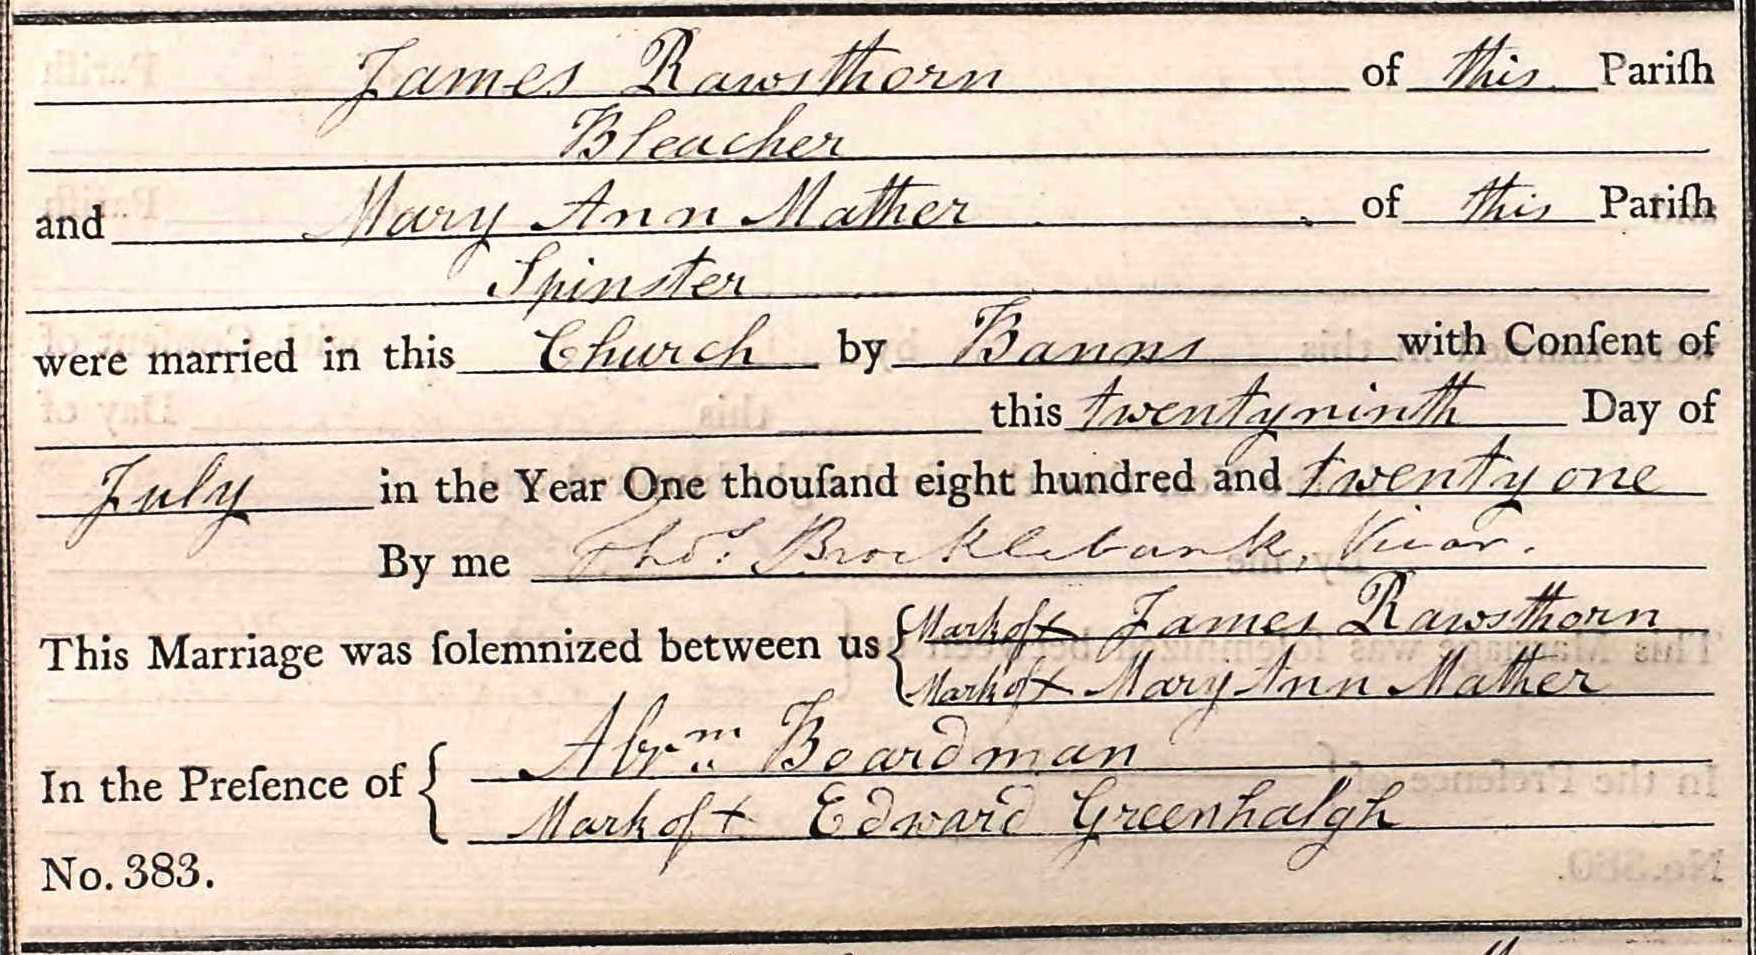 James Rawsthorn of this Pariſh
Bleacher
and Mary Ann Mather of this Pariſh
Spinster
were married in this Church by Banns with Conſent of
this twentyninth Day of
July in the Year One thouſand eight hundred and twenty one
By me Thos. Brocklebank, Vicar.
This Marriage was ſolemnized between us { Mark of x James Rawsthorn
Mark of x Mary Ann Mather
In the Preſence of { Abrm. Boardman
Mark of x Edward Greenhalgh
No. 383.